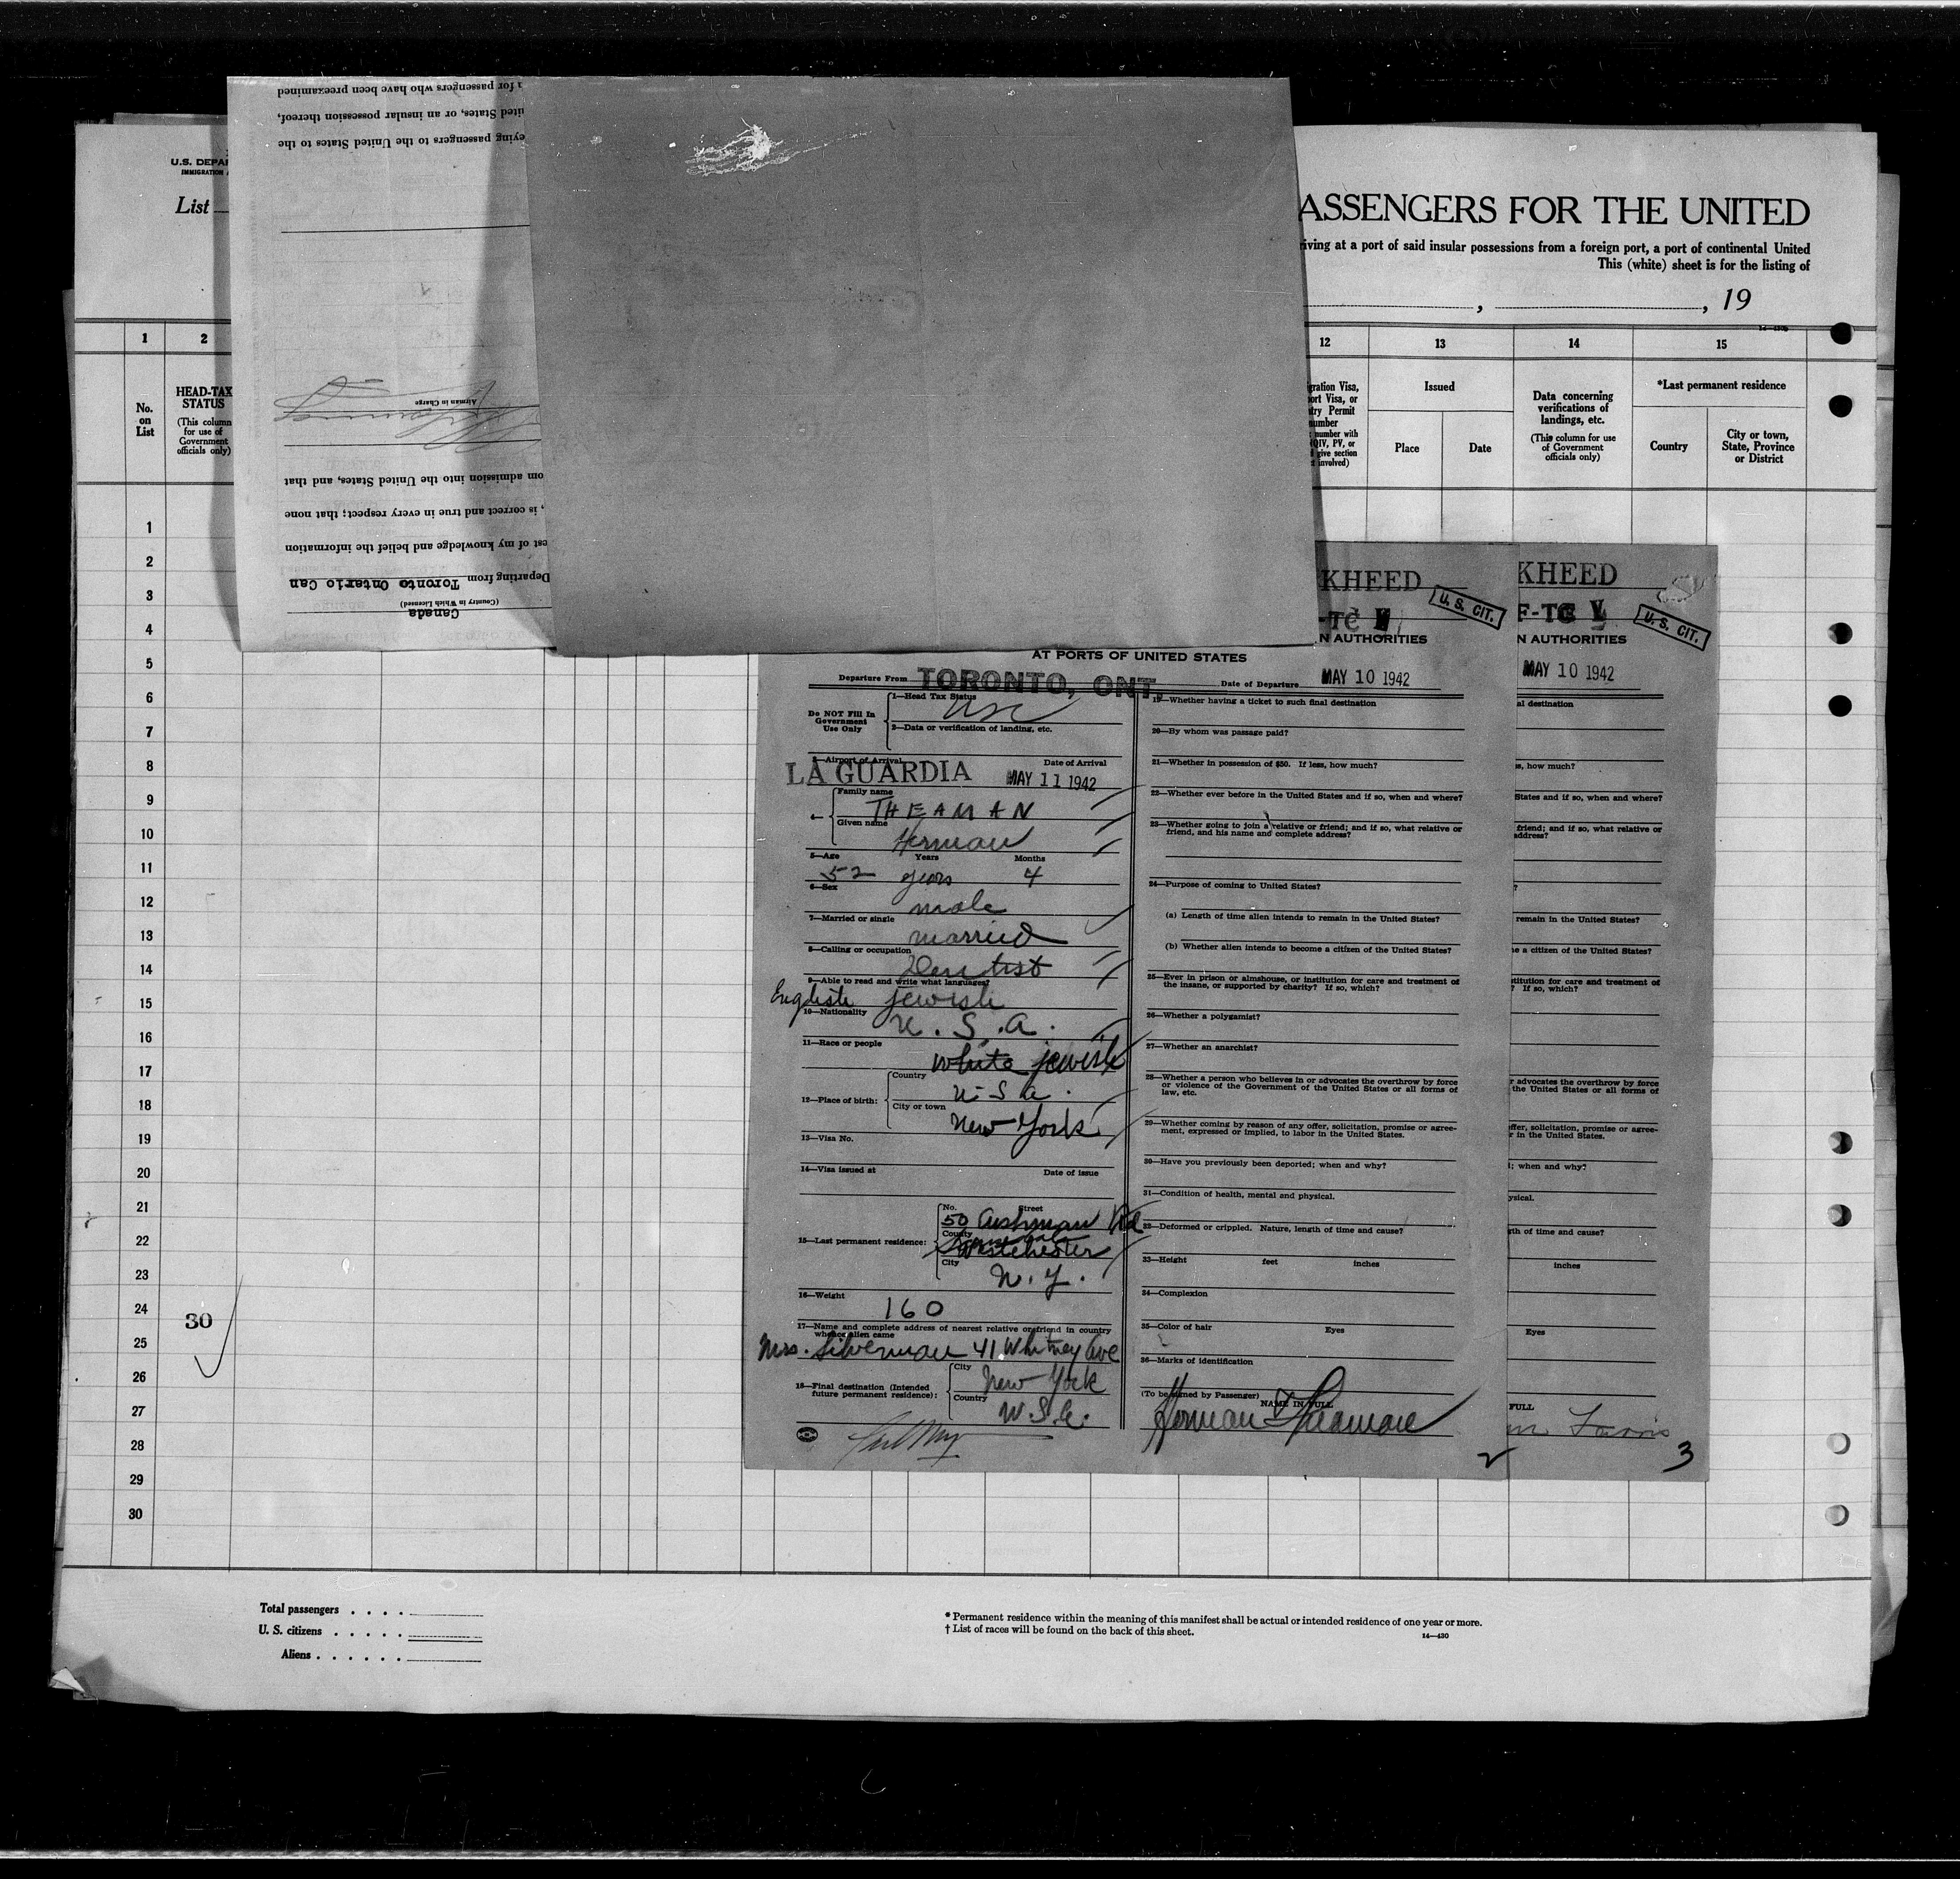 U.S. DEPA
IMMIGRATION
List
ASSENGERS FOR THE UNITED
riving at a port of said insular possessions from a foreign port, a port of continental United
This (white) sheet is for the listing of
, , 19
1 2 12 13 14 15
No.
on
List
HEAD-TAX
STATUS
(This column
for use of
Government
officials only)
gration Visa,
ort Visa, or
try Permit
number
number with
QIV, PV, or
give section
involved)
Issued
Place Date
Data concerning
verifications of
landings, etc.
(This column for use
of Government
officials only)
*Last permanent residence
Country
City or town,
State, Province
or District
1
2
3
4
5
6
7
8
9
10
11
12
13
14
15
16
17
18
19
20
21
22
23
24
25
26
27
28
29
30
30
Total passengers . . . .
U. S. citizens . . . . .
Aliens . . . . . .
* Permanent residence within the meaning of this manifest shall be actual or intended residence of one year or more.
† List of races will be found on the back of this sheet.
14—430
Canada
(Country in Which Licensed)
Departing from Toronto Ontario Can
est of my knowledge and belief the information
, is correct and true in every respect; that none
om admission into the United States, and that
Airman in Charge
eying passengers to the United States to the
ited States, or an insular possession thereof,
for passengers who have been preexamined
KHEED
-TC
U. S. CIT.
N AUTHORITIES
AT PORTS OF UNITED STATES
Departure From TORONTO, ONT. Date of Departure MAY 10 1942
Do NOT Fill In
Government
Use Only
1—Head Tax Status
USC
2—Data or verification of landing, etc.
3—Airport of Arrival Date of Arrival
LA GUARDIA MAY 11 1942
4—
Family name
THEAMAN
Given name
Herman
5—Age Years Months
52 years 4
6—Sex
male
7—Married or single
married
8—Calling or occupation
Dentist
9—Able to read and write what languages?
English jewish
10—Nationality
U. S. A.
11—Race or people
white jewish
12—Place of birth:
Country
U.S.A.
City or town
New York
13—Visa No.
14—Visa issued at Date of issue
15—Last permanent residence:
No. Street
50 Cushman Rd
County
Westchester
City
N. Y.
16—Weight
160
17—Name and complete address of nearest relative or friend in country
whence alien came
Mrs. Silverman 41 Whitney Ave
18—Final destination (Intended
future permanent residence):
City
New York
Country
U.S.A.
19—Whether having a ticket to such final destination
20—By whom was passage paid?
21—Whether in possession of $50. If less, how much?
22—Whether ever before in the United States and if so, when and where?
23—Whether going to join a relative or friend; and if so, what relative or
friend, and his name and complete address?
24—Purpose of coming to United States?
(a) Length of time alien intends to remain in the United States?
(b) Whether alien intends to become a citizen of the United States?
25—Ever in prison or almshouse, or institution for care and treatment of
the insane, or supported by charity? If so, which?
26—Whether a polygamist?
27—Whether an anarchist?
28—Whether a person who believes in or advocates the overthrow by force
or violence of the Government of the United States or all forms of
law, etc.
29—Whether coming by reason of any offer, solicitation, promise or agree-
ment, expressed or implied, to labor in the United States.
30—Have you previously been deported; when and why?
31—Condition of health, mental and physical.
32—Deformed or crippled. Nature, length of time and cause?
33—Height feet inches
34—Complexion
35—Color of hair Eyes
36—Marks of identification
(To be signed by Passenger)
NAME IN FULL
Herman Theaman
2
KHEED
F-TC
U. S. CIT.
N AUTHORITIES
MAY 10 1942
al destination
s, how much?
States and if so, when and where?
friend; and if so, what relative or
address?
?
remain in the United States?
e a citizen of the United States?
stitution for care and treatment of
? If so, which?
r advocates the overthrow by force
the United States or all forms of
offer, solicitation, promise or agree-
r in the United States.
; when and why?
ysical.
gth of time and cause?
inches
Eyes
FULL
3